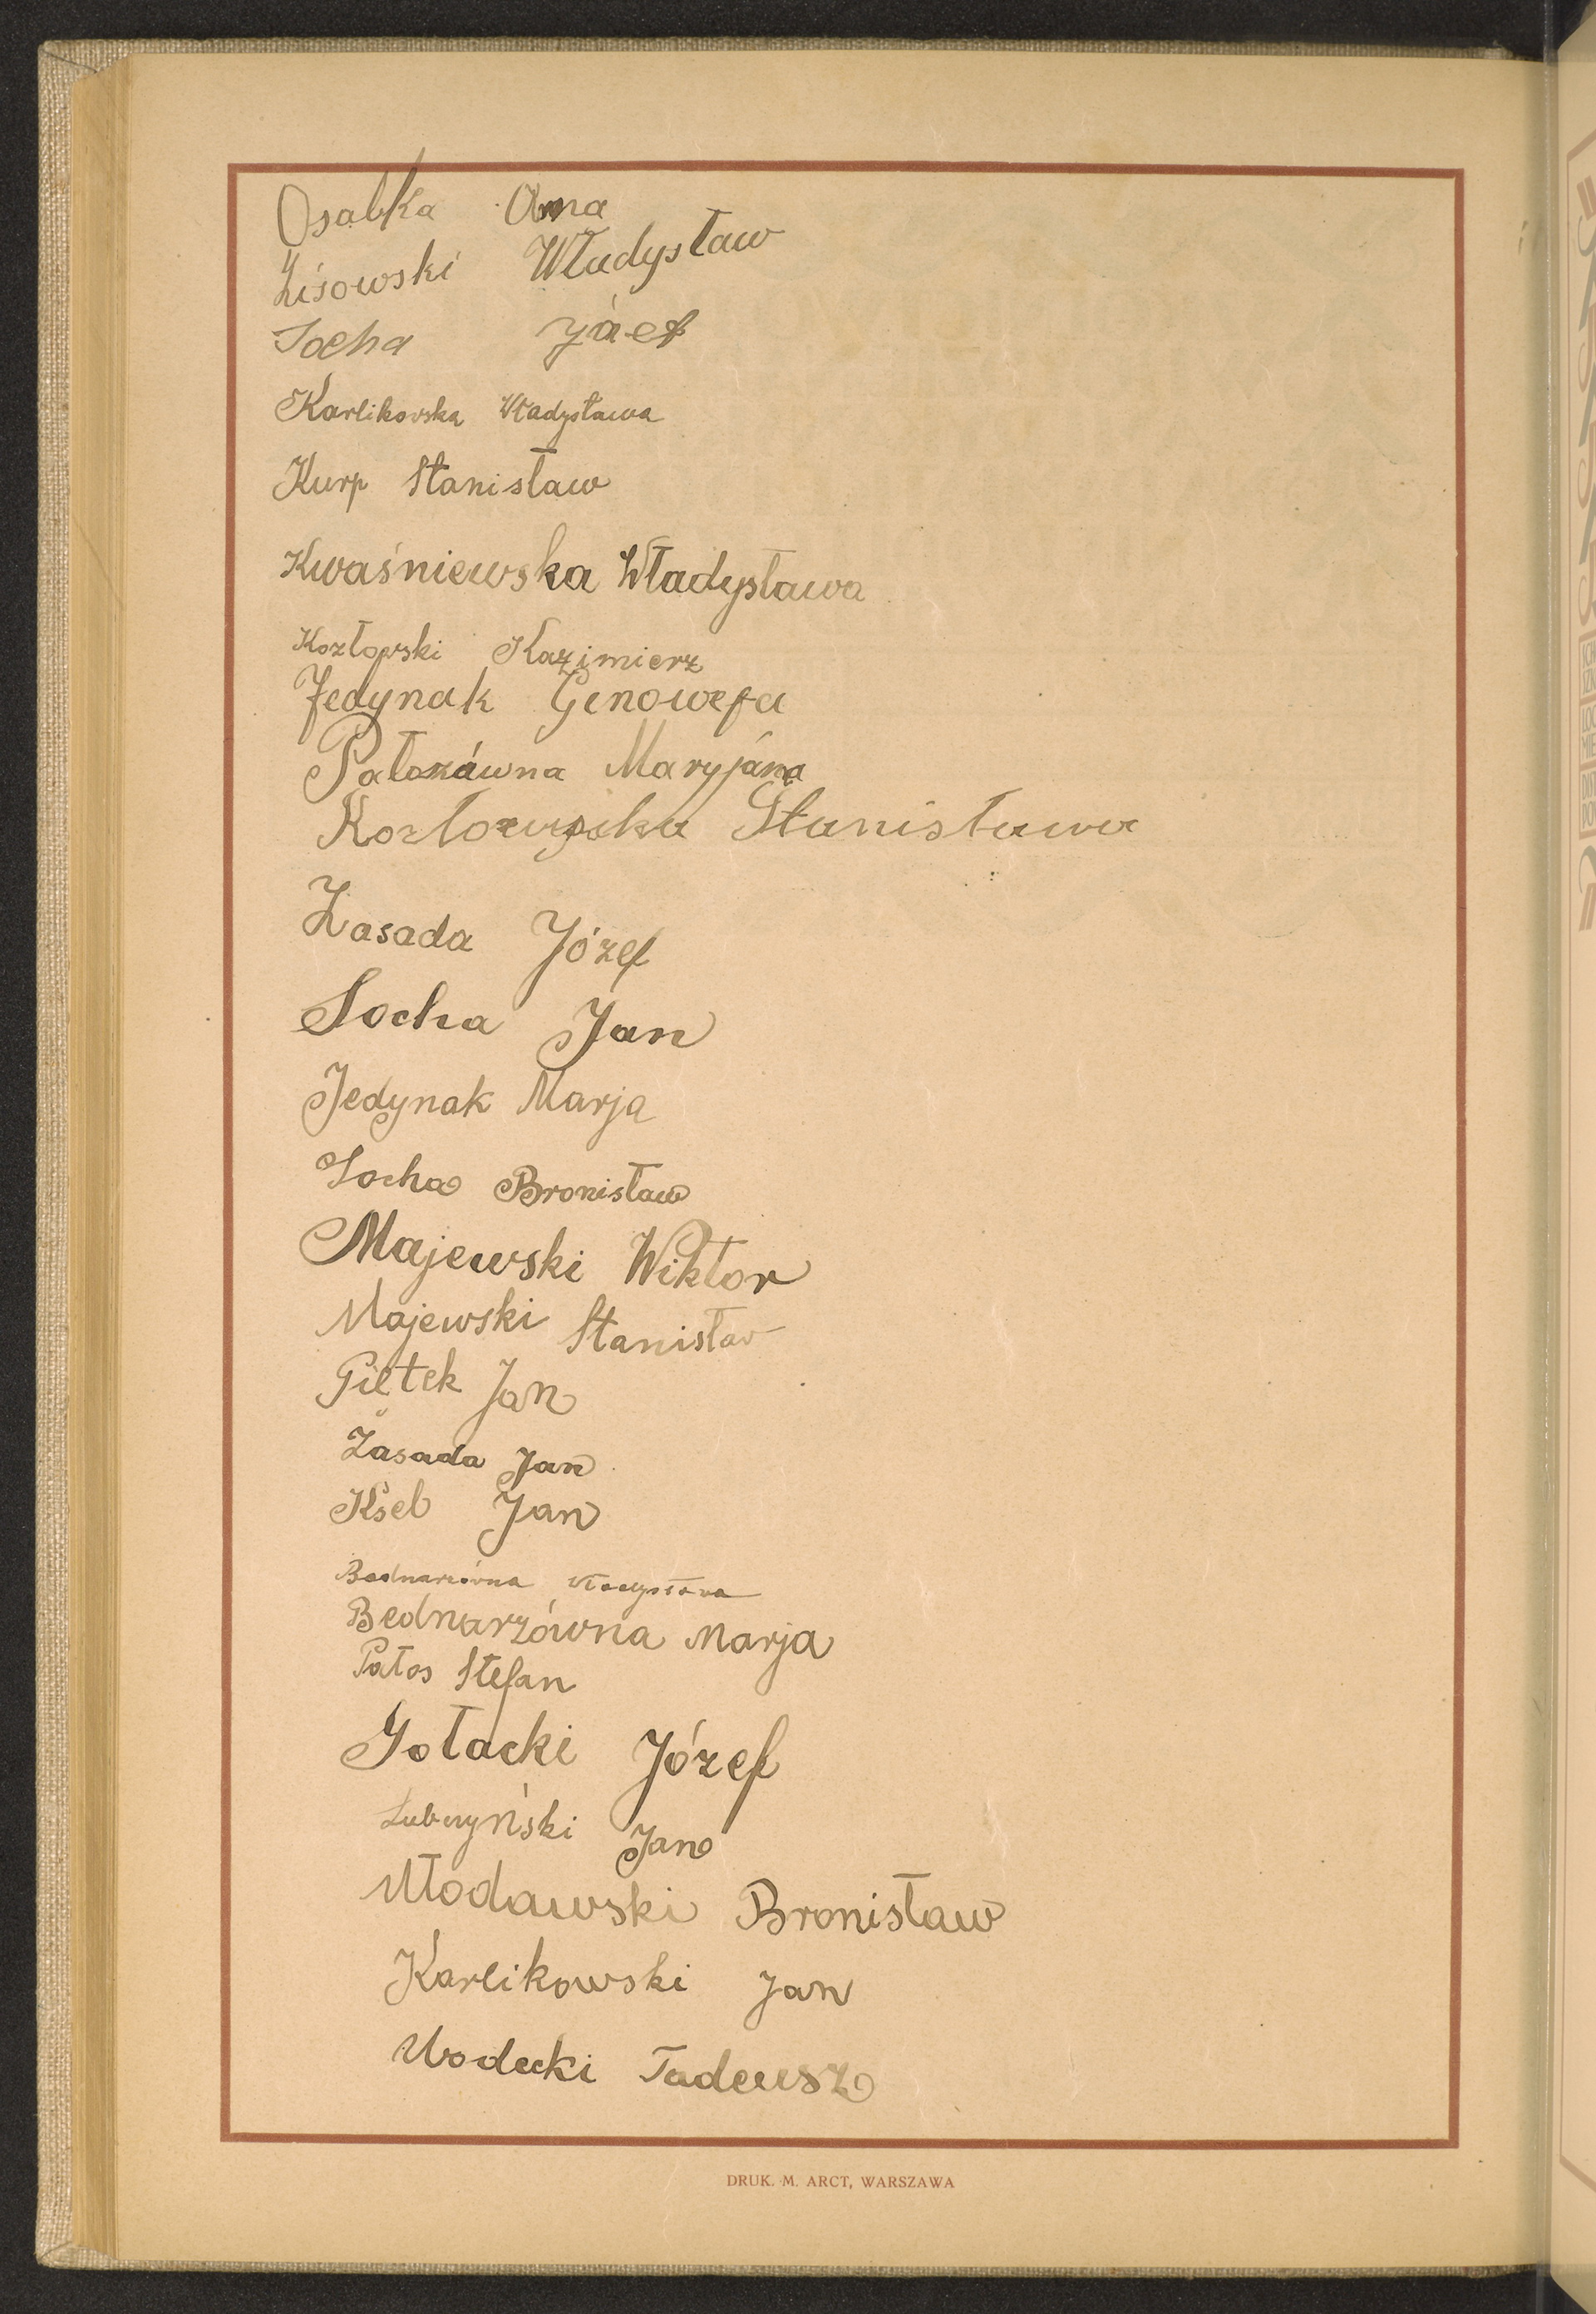 Osabka Anna
Lisowski Władysław
Socha
Karlikovska Władysława
Kurp Stanisław
Kwaśniewska Władysława
Kozłowski Kazimierz
Jedynak Genowefa
Pałosáwna Maryjána
Kozłowska Stanisława
Zasada Józef
Socha Jan
Jedynak Marja
Socha Bronisław
Majewski Wiktor
Majewski Stanisław
Piętek Jan
Zasada Jan
Kseb Jan
Bednarzówna Władysława
Bednarzówna Marja
Pałos Stefan
Gołacki Józef
Lubczyński Jan
Włodawski Bronisław
Karlikowski Jan
Wodecki Tadeusz
DRUK. M. ARCT, WARSZAWA